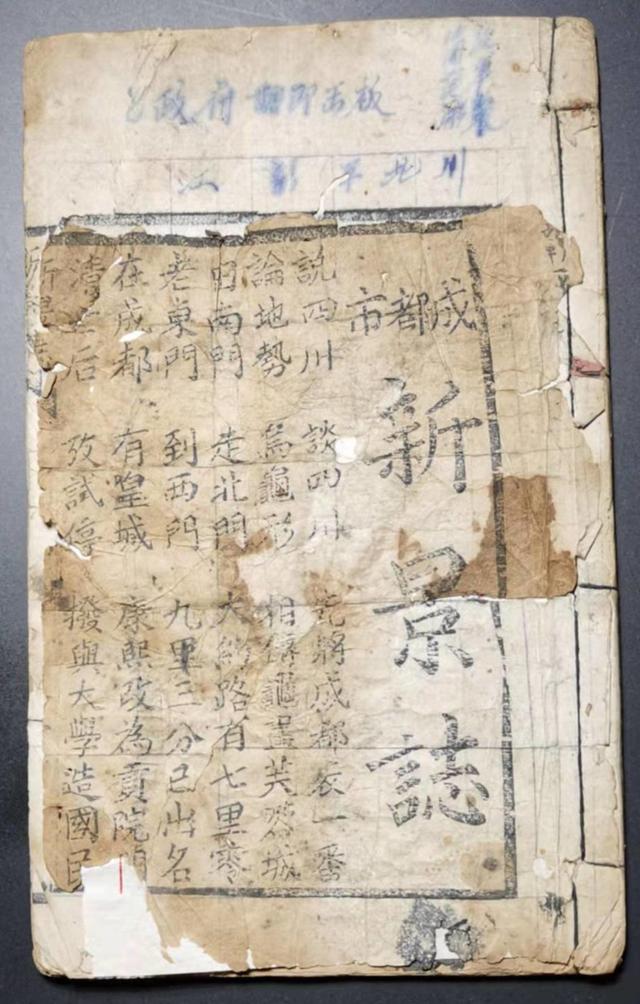 政府翻印出板
成都市
新景誌
說四川 談四川 先將成都表一番
論地勢 為龜形 相傳龜畫芙蓉城
南門 走北門 大約路有七里零
老東門 到西門 九里三分已出名
在成都 有皇城 康熙改為貢院門
清后 攷試停 撥與大學造國民